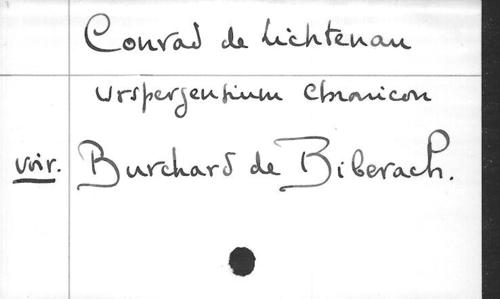 Conrad de Lichtenau
Urspergensium Chronicon
voir. Burchard de Biberach.